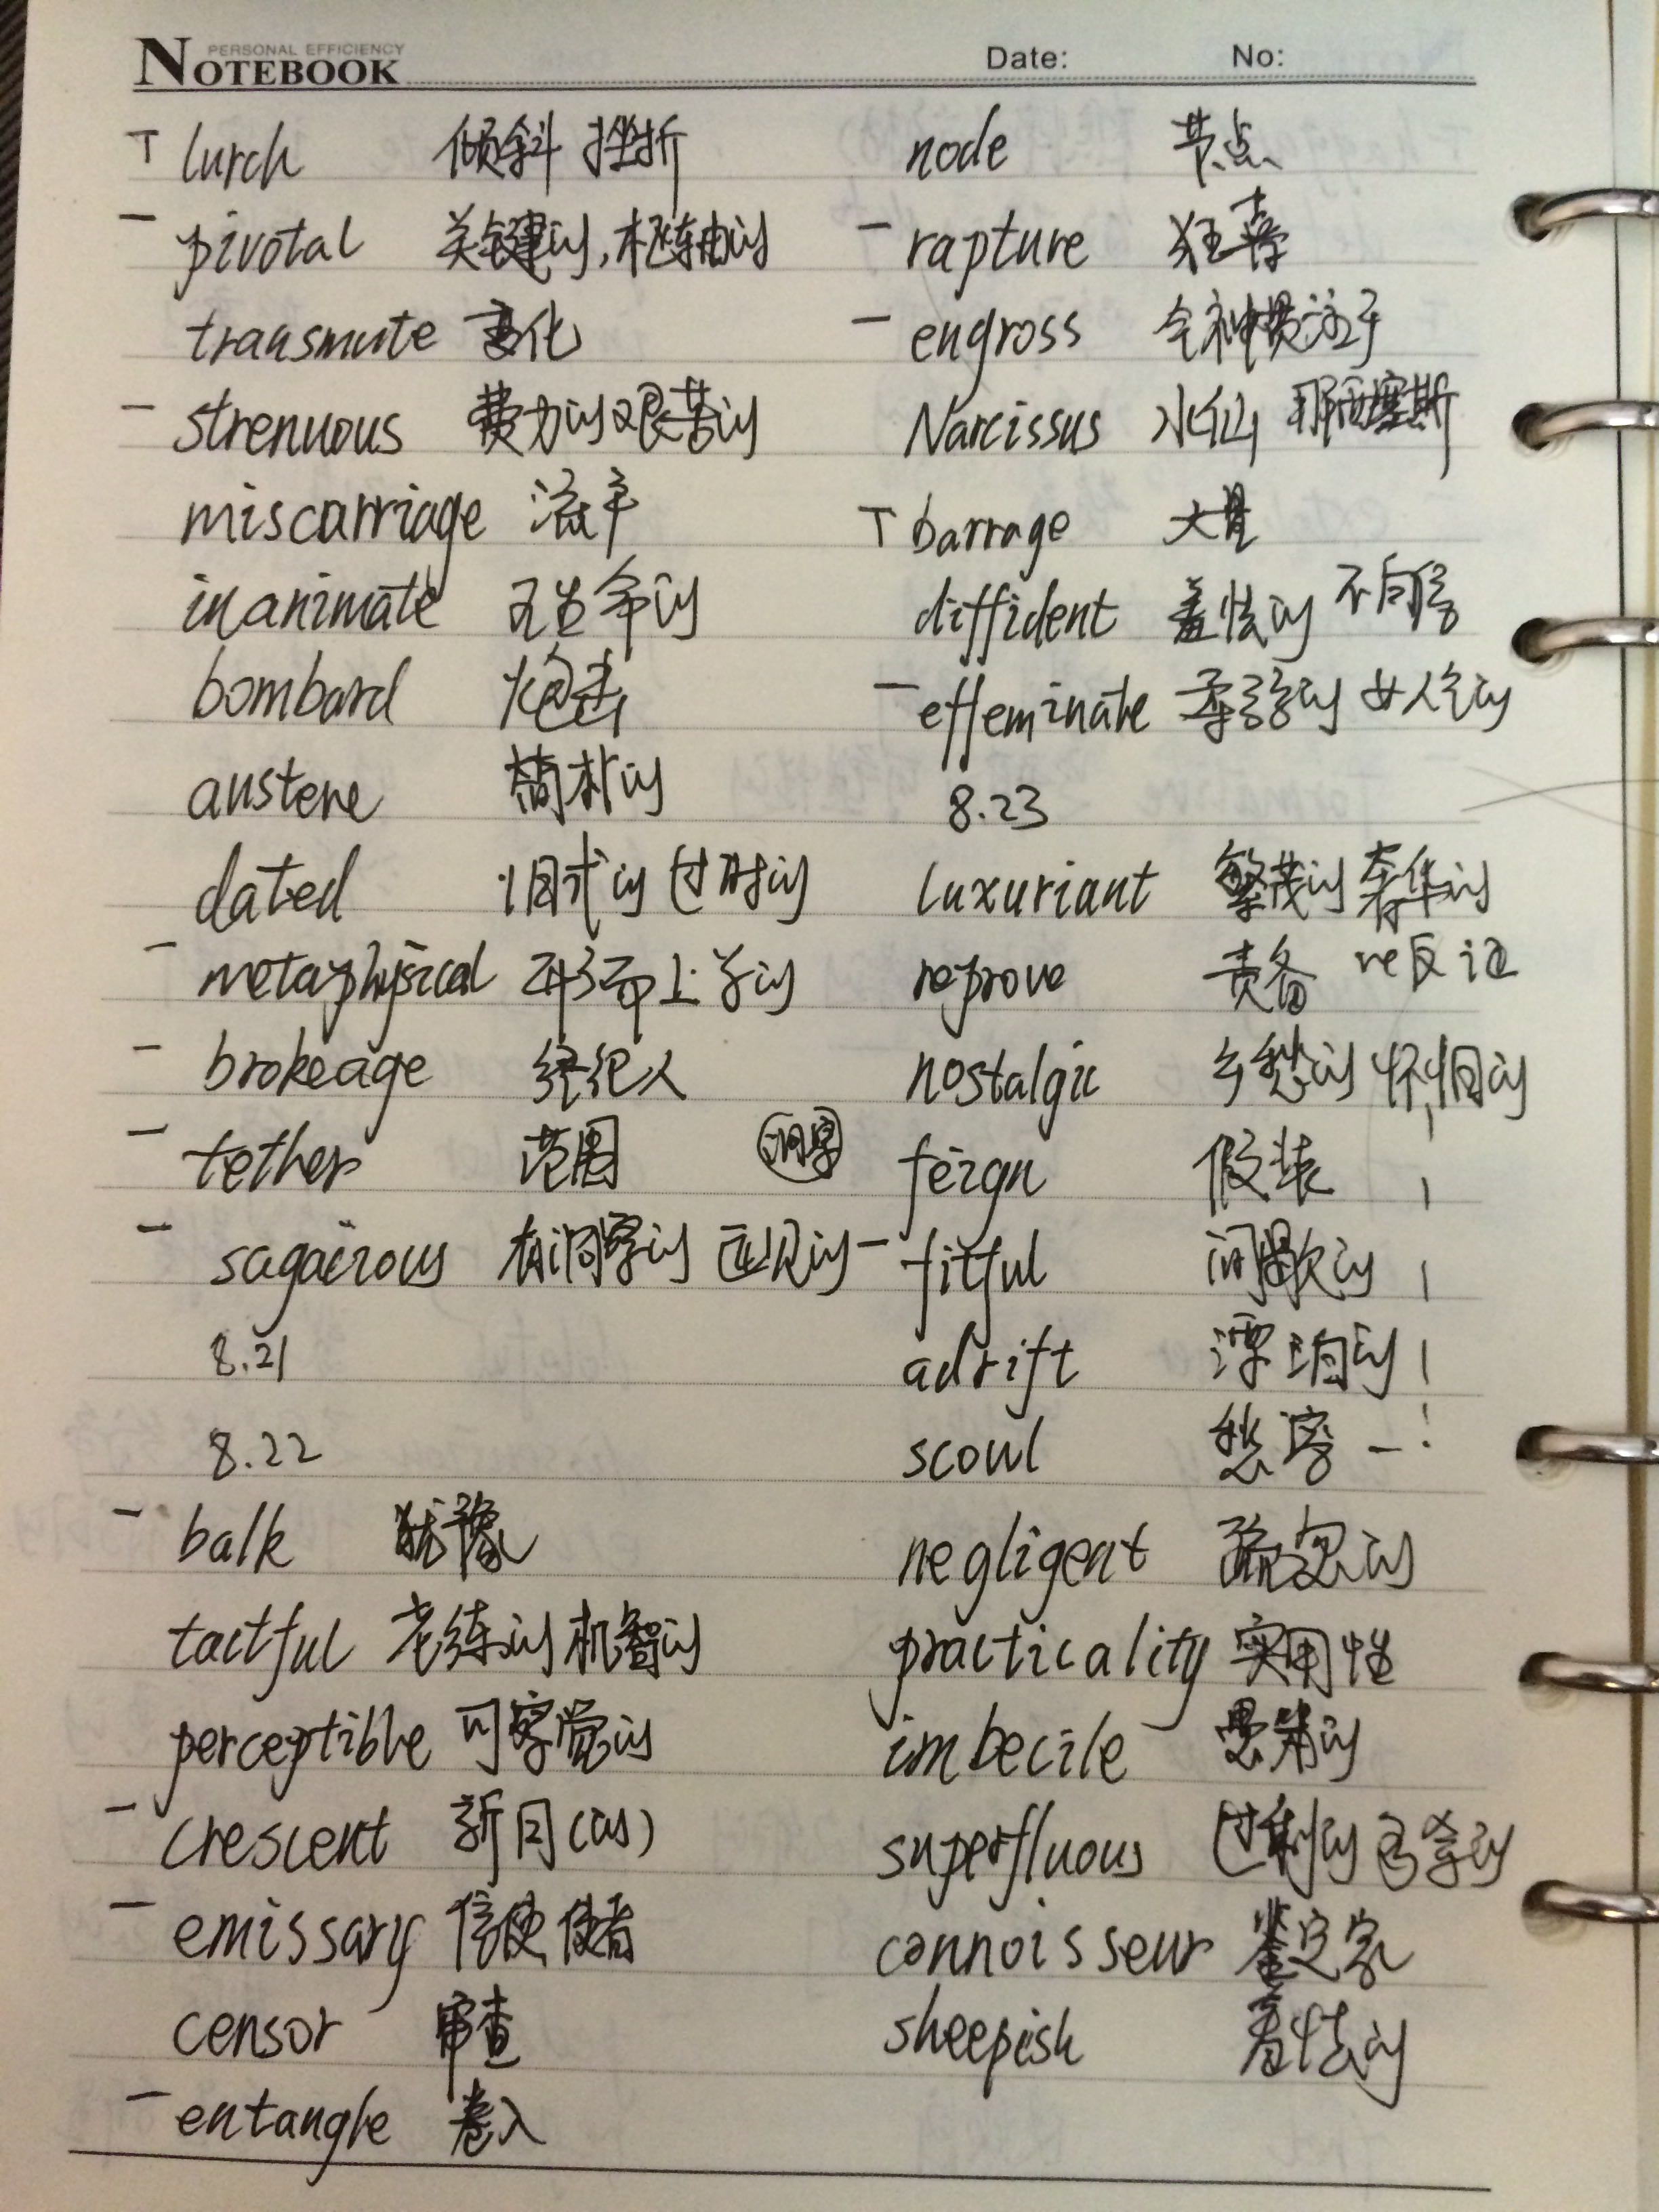 PERSONAL EFFICIENCY
NOTEBOOK
Date: No:
T lurch 倾斜 挫折
— pivotal 关键的,枢轴的
transmute 变化
— strenuous 费力的 艰苦的
miscarriage 流产
inanimate 无生命的
bombard 炮击
austere 简朴的
dated 旧式的 过时的
— metaphysical 形而上学的
— brokeage 经纪人
— tether 范围
— sagacious 有洞察的 远见的
洞察
8.21
8.22
— balk 犹豫
tactful 老练的 机智的
perceptible 可察觉的
— crescent 新月(的)
— emissary 信使 使者
censor 审查
— entangle 卷入
node 节点
— rapture 狂喜
— engross 全神贯注于
Narcissus 水仙 那西塞斯
T barrage 大量
diffident 羞怯的 不自信
— effeminate 柔弱的 女人气的
8.23
luxuriant 繁茂的 奢华的
reprove 责备 re反 证
nostalgic 乡愁的 怀旧的
feign 假装
— fitful 间歇的
adrift 漂泊的
scowl 愁容
negligent 疏忽的
practicality 实用性
imbecile 愚笨的
superfluous 过剩的 多余的
connoisseur 鉴定家
sheepish 羞怯的